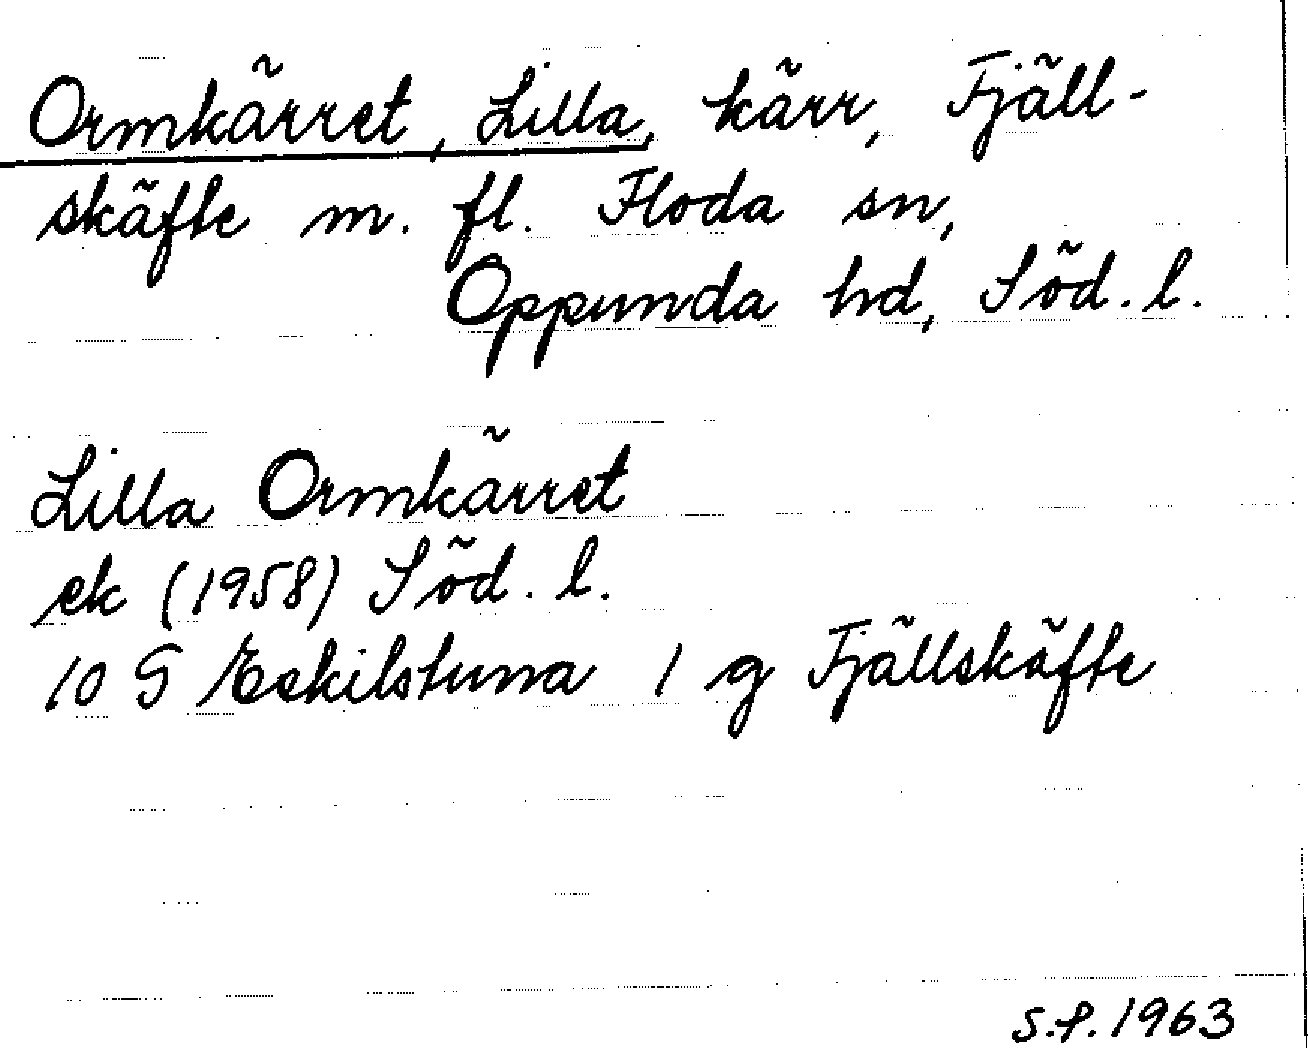 Ormkärret, Lilla, kärr, Fjäll-
skäfte m. fl. Floda sn,
Oppunda hd, Söd. l.
Lilla Ormkärret
ek (1958) Söd. l.
10 G Eskilstuna 1 g Fjällskäfte
S.P. 1963